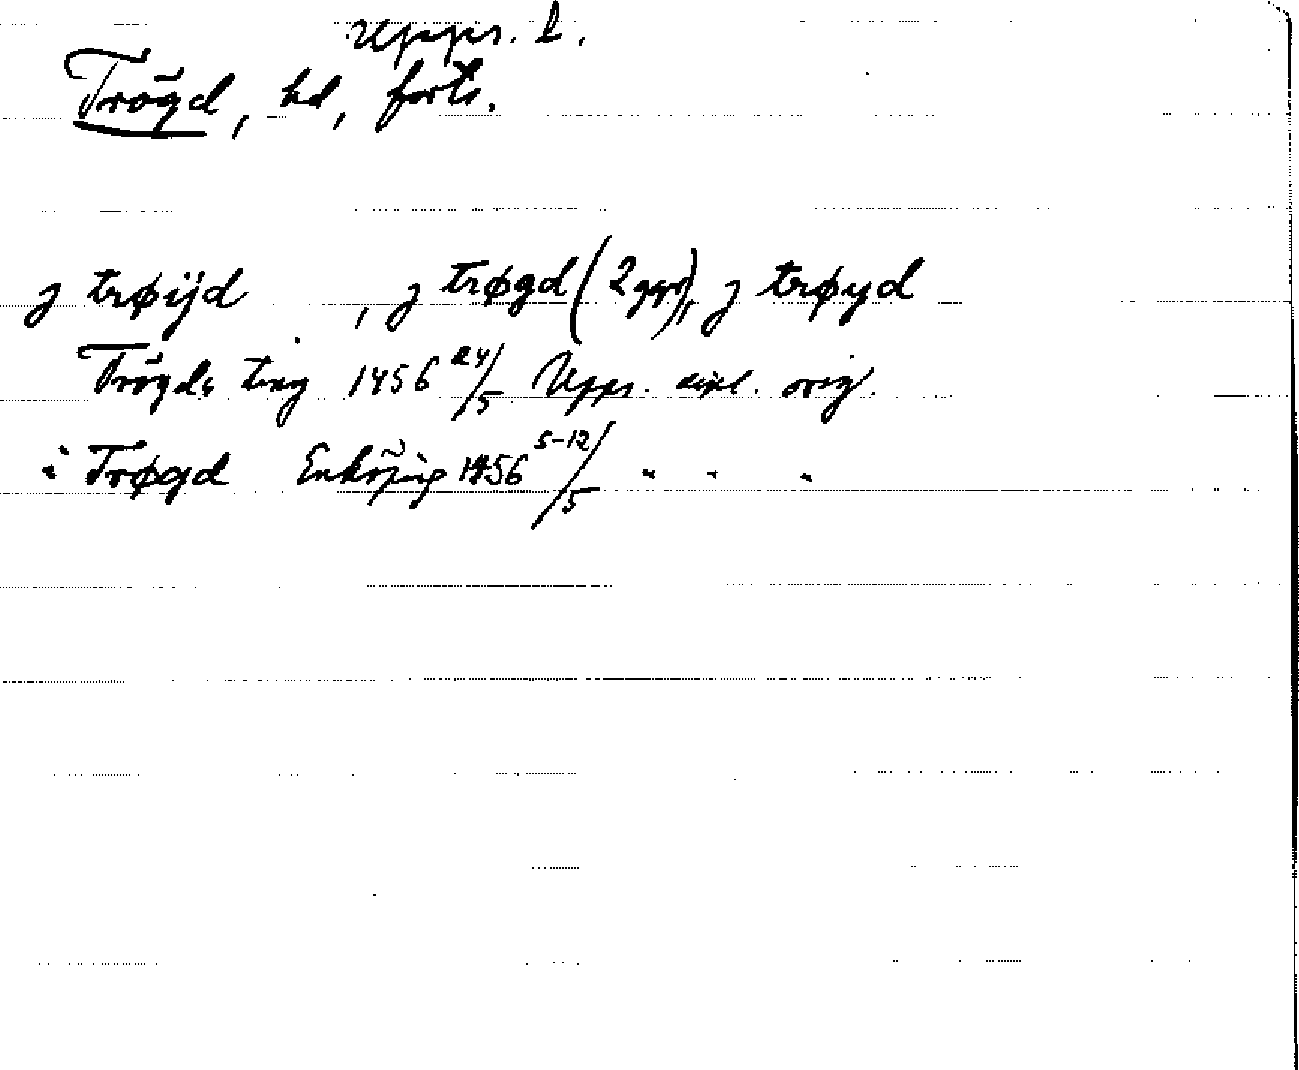 Upps. l.
Trögd, hd, forts.
j trøijd , j trøgd (2 ggr), j trøyd
Trögds ting 1456 24/5 Upps. dipl. orig.
i Trøgd Enköping 1456 5-12/5 " " "